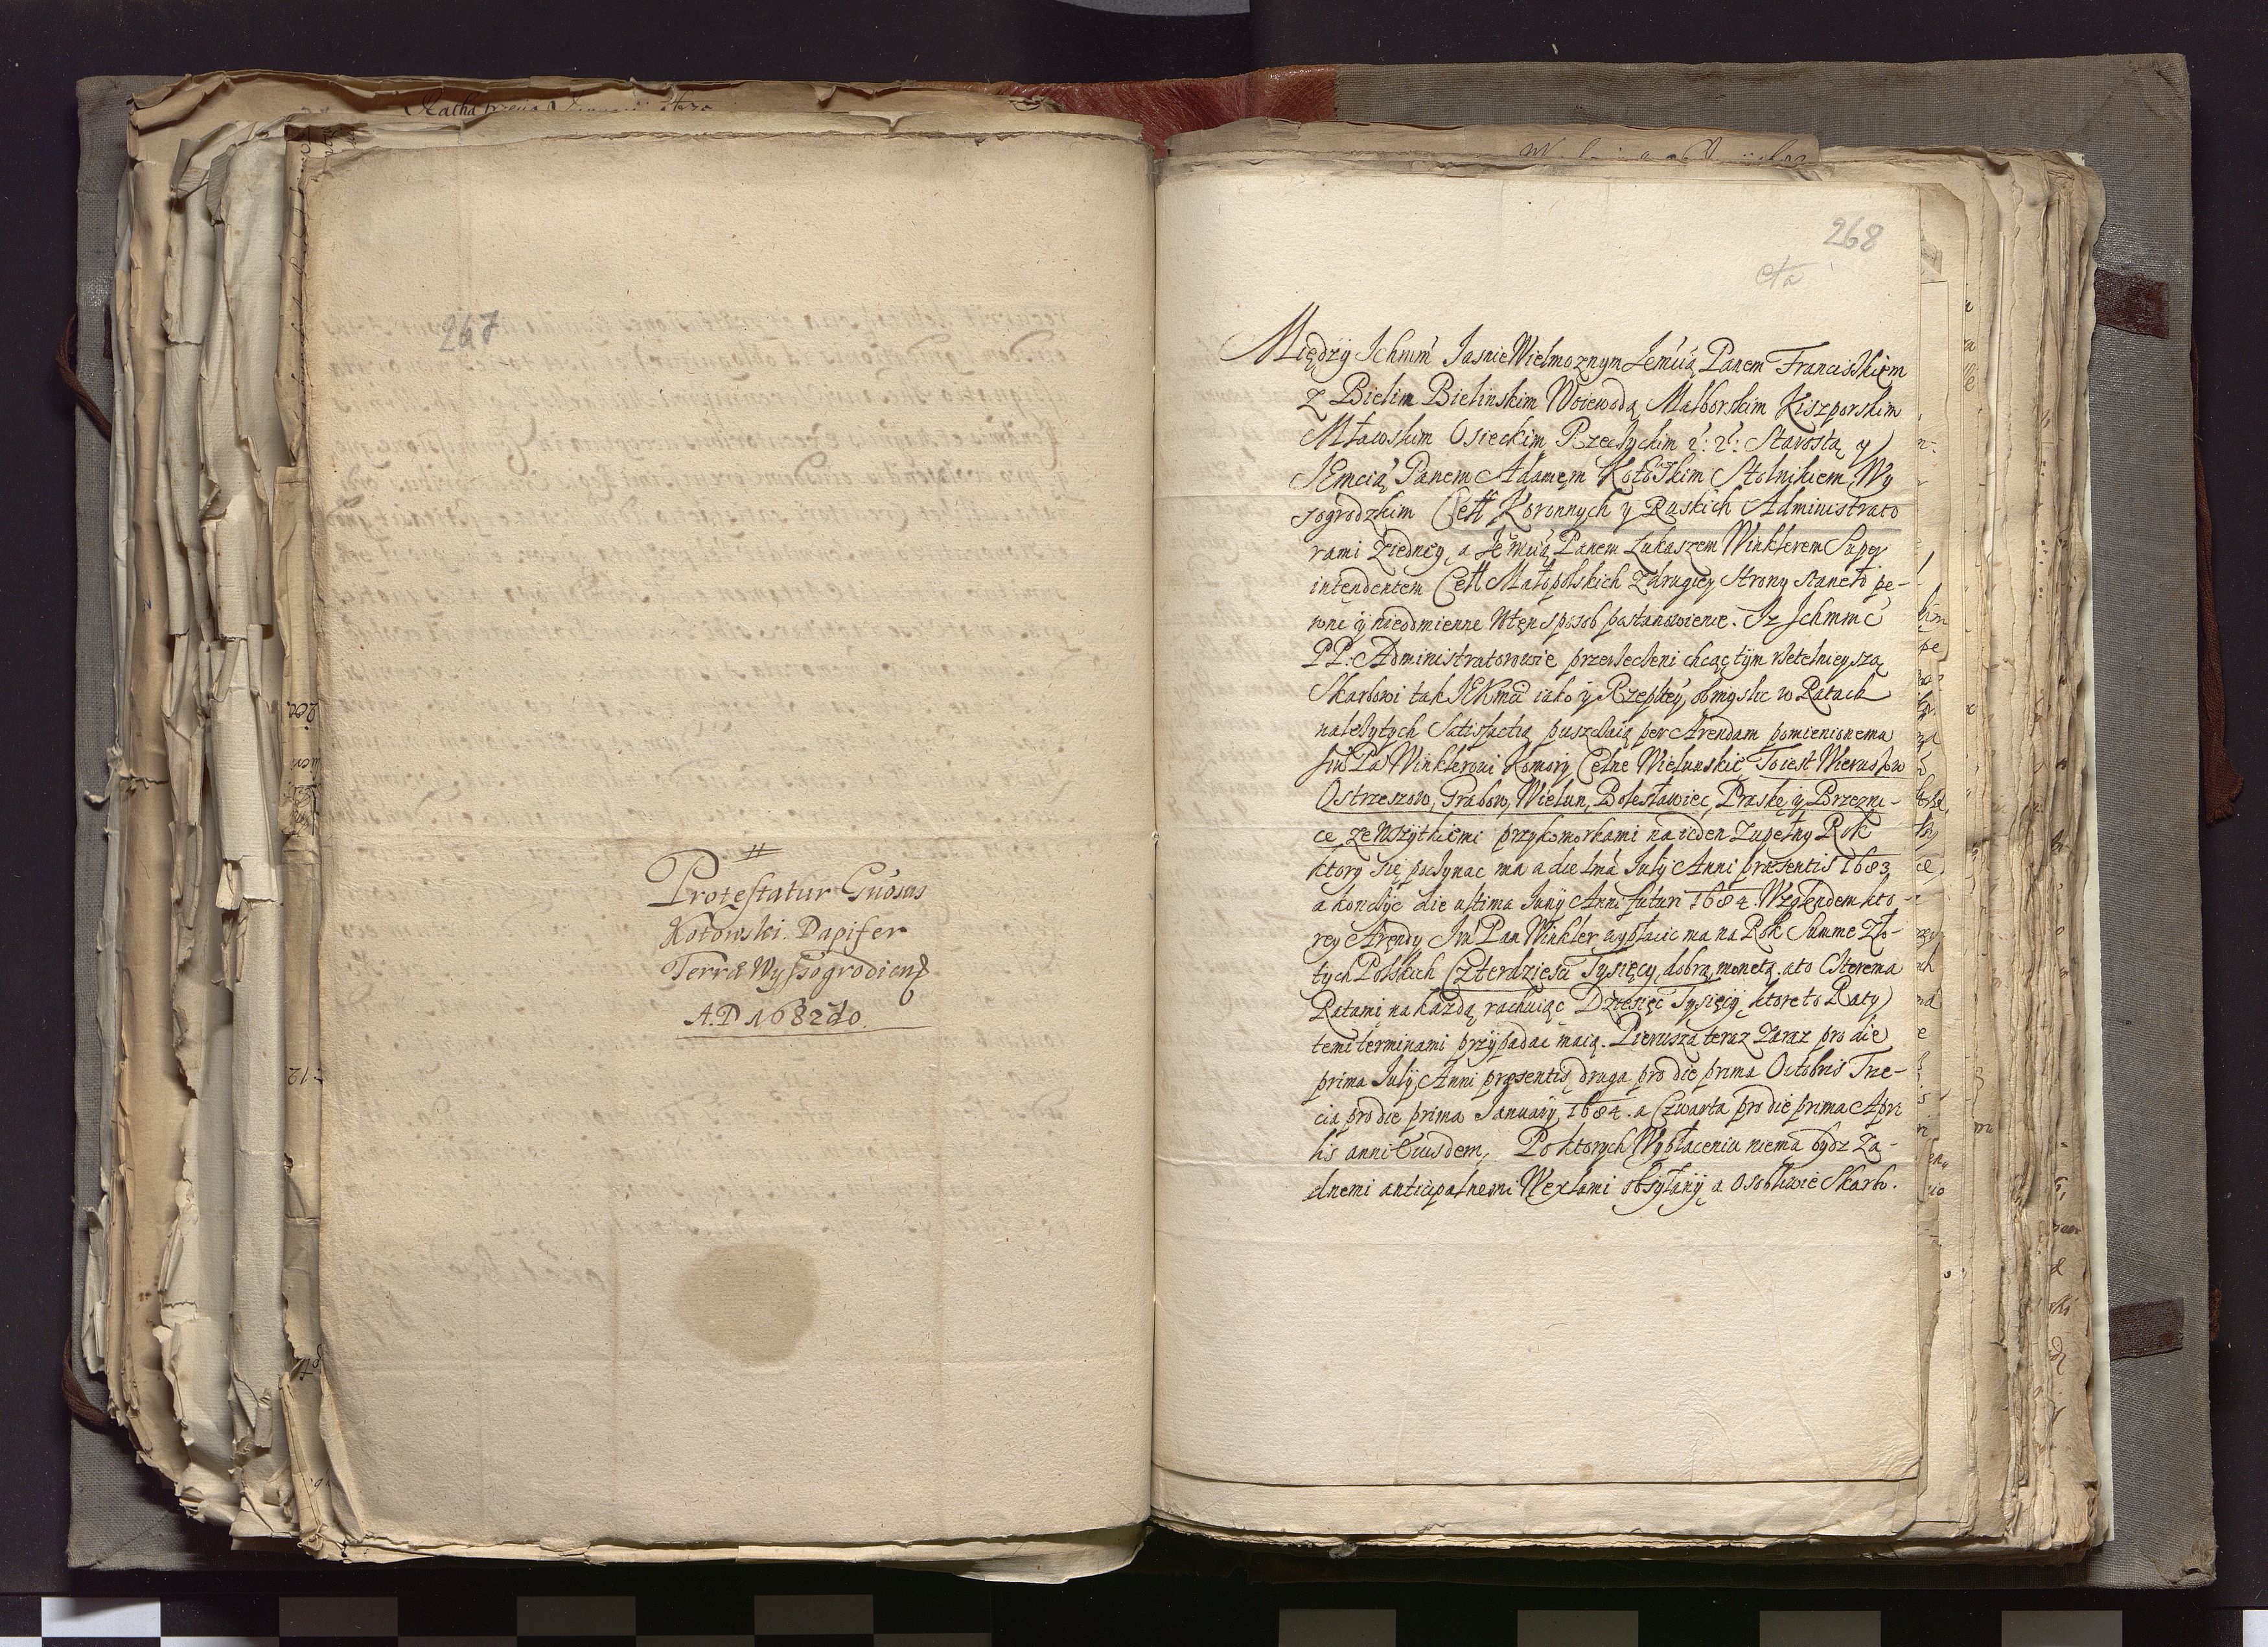 267
Protestatur Gńosus
Kotowski. Dapifer
Terræ Wyssogrodiens
A.D 1682do.
268
Między Ichmm JasnieWielmoznym Jemcią Panem Franciszkiem
z Bielin Bielinskim Woiewodą Malborskim Kiszporskim
Mławskim Osieckim Rzeczyckim Starostą y
JEmcią Panem Adamem Kotowskim Stolnikiem Wy
sogrodzkim Cełł Koronnych y Ruskich Administrato
rami ziedney, a Jemcią Panem Lukaszem Winklerem Super
intendentem Cełł Małopolskich zdrugiey strony stanęło pe-
wne y nieodmienne wten sposob postanowienie. Iz Ichmmć
PP. Administratorowie przerzeczeni chcąc tym rzetelnieyszą
Skarbowi tak JEKmci iako y Rzeptey obmyslic w Ratach
nalezytych Satisfactią puszczaią per Arendam pomienionemu
Jm Pu Winklerowi Komory Celne Wielunskie, Toiest Wieruszow
Ostrzeszow, Grabow, Wielun, Bolesławiec, Praskę y Brzezni-
ce ze wszytkiemi przykomorkami na ieden zupełny Rok
ktory się poczynac ma a die 1ma July Anni præsentis 1683,
a konczyc die ultima Juny Anni futuri 1684. Względem kto-
rey Arendy Jm Pan Winkler wypłacic ma na Rok Summę Zło-
tych Polskich Czterdziesci Tysięcy, dobrą monetą. ato Czterema
Ratami na kazdą rachuiąc Dziesięc Tysięcy, ktore to Raty
temi terminami przypadac maią. Pierwsza teraz zaraz pro die
prima July Anni præsentis, druga pro die prima Octobris Trze-
cia pro die prima January 1684. a Czwarta pro die prima Apri
lis anni Eiusdem, Po ktorych Wypłaceniu niema bydz Za-
dnemi anticipatnemi Wexlami obsyłany, a Osobliwie Skarbo.